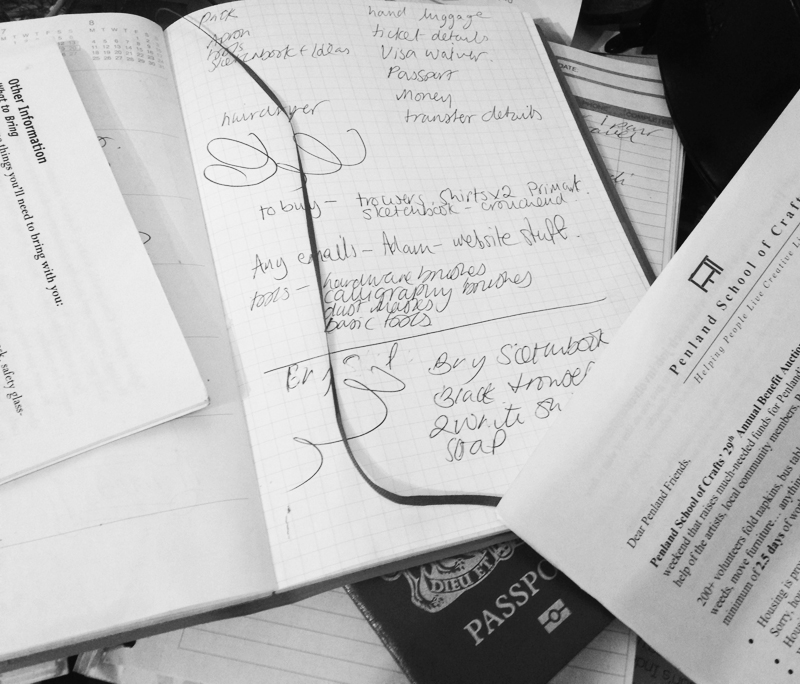 Other Information
What to Bring
things you'll need to bring with you:
safety glass-
Apron
tools
Sketchbook + Ideas
hairdryer
hand luggage
ticket details
Visa waiver.
Passport
Money
transfer details
to buy - trousers, shirts x2 Primark.
sketchbook - crouchend
Any emails - Adam - website stuff.
tools - hardware brushes
calligraphy brushes
dust masks
basic tools
Buy Sketchbook
Black trouser
2 white Sh
soap
DATE
DIEU ET
PASSPO
Penland School of Crafts
Helping People Live Creative Li
Dear Penland Friends,
Penland School of Crafts' 29th Annual Benefit Auction
weekend that raises much-needed funds for Penland
help of the artists, local community members,
200+ volunteers fold napkins, bus tab
weeds, move furniture... anything
minimum of 2.5 days of wo
• Housing is pro
Sorry, ho
• Hou